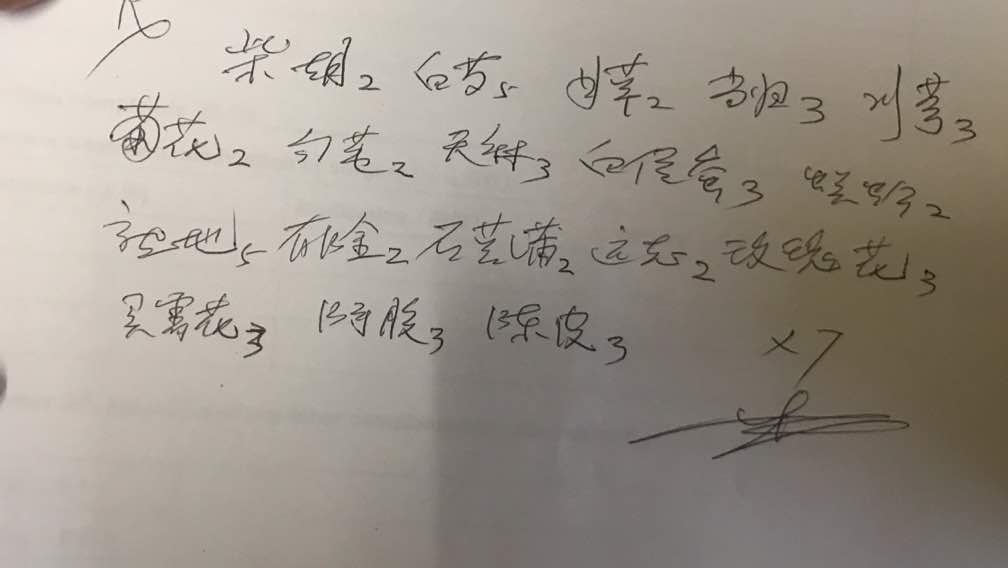 柴胡2 白芍5 甘草2 当归3 川芎3
菊花2 天麻3 白僵蚕3 蜈蚣2
熟地5 郁金2 石菖蒲2 远志2 玫瑰花3
灵霄花3 阿胶3 陈皮3 ×7